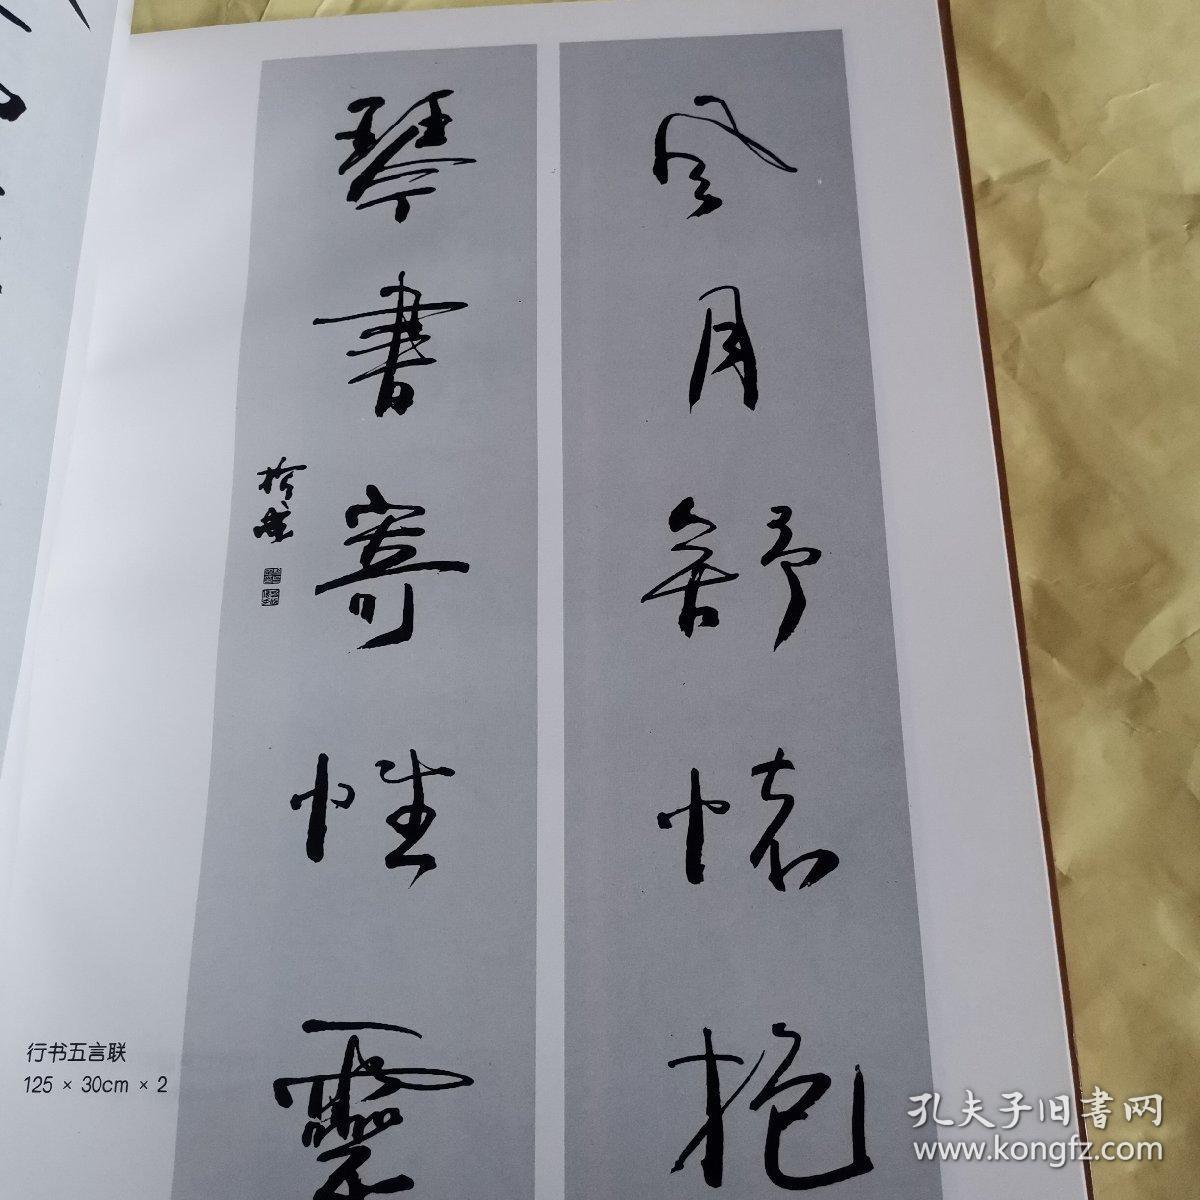 风月舒怀抱
琴書寄性靈
行书五言联
125 × 30cm × 2
孔夫子旧書网
www.kongfz.com